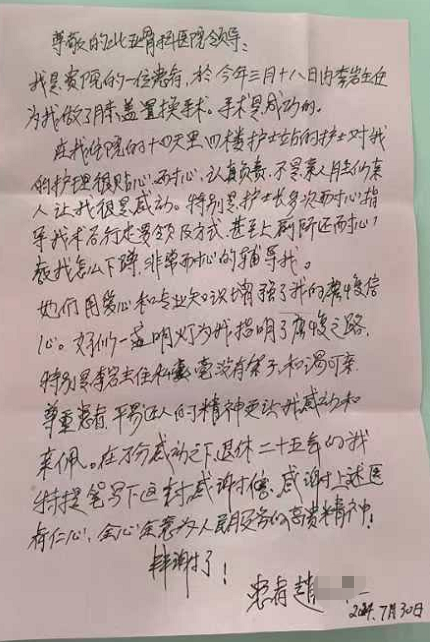 尊敬的北亚骨科医院领导：
我是贵院的一位患者，於今年三月十八日内李岩主任
为我做了膝盖置换手术。手术是成功的。
在我住院的十四天里四楼护士站的护士对我
的护理很贴心，耐心，认真负责，不是亲人胜似亲
人让我很是感动。特别是护士长多次耐心指
导我术后行走要领及方式，甚至上厕所还耐心
教我怎么下蹲，非常耐心的辅导我。
她们用爱心和专业知识增强了我的康复信
心。好似一盏明灯为我指明了康复之路，
特别是李岩主任丝毫没有架子，和谒可亲
尊重患者，平易近人的精神更让我感动和
敬佩。在万分感动之下，退休二十五年的我
特提笔写下这封感谢信，感谢上述医
者仁心，全心全意为人民服务的高贵精神！
拜谢了！
患者赵
2024.7月30日